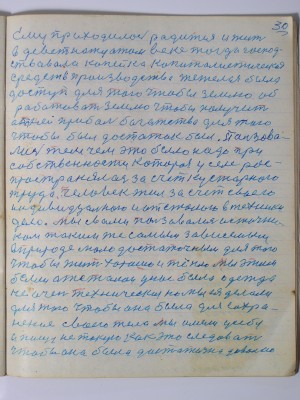 30
Ему приходилось родится и жить
в девятнатцатом веке тогда господ-
ствавала копейка капиталистическая
средств производства тежела была
доступ для того чтобы землю об
работовать землю чтобы получить
прибыл багатства для того
чтобы был достаток был. Пользова-
лись тем чем это было надо при
собственности которая у селе рос-
пространялась за счёт кустарного
труда. Человек жил за счёт своего
индивидуального и
деле. Мы самы познавалися
ком таким же самым зависелим
в природе мало достаточным для того
чтобы жить хорошо и тепло мы этим
болели а желали у нас была одежда
не очен технически но мы её делали
для того чтобы она была для сохра-
нение своего тела мы имели шубу
и пищу не такую как это следовать
чтобы она была достаточно довольно